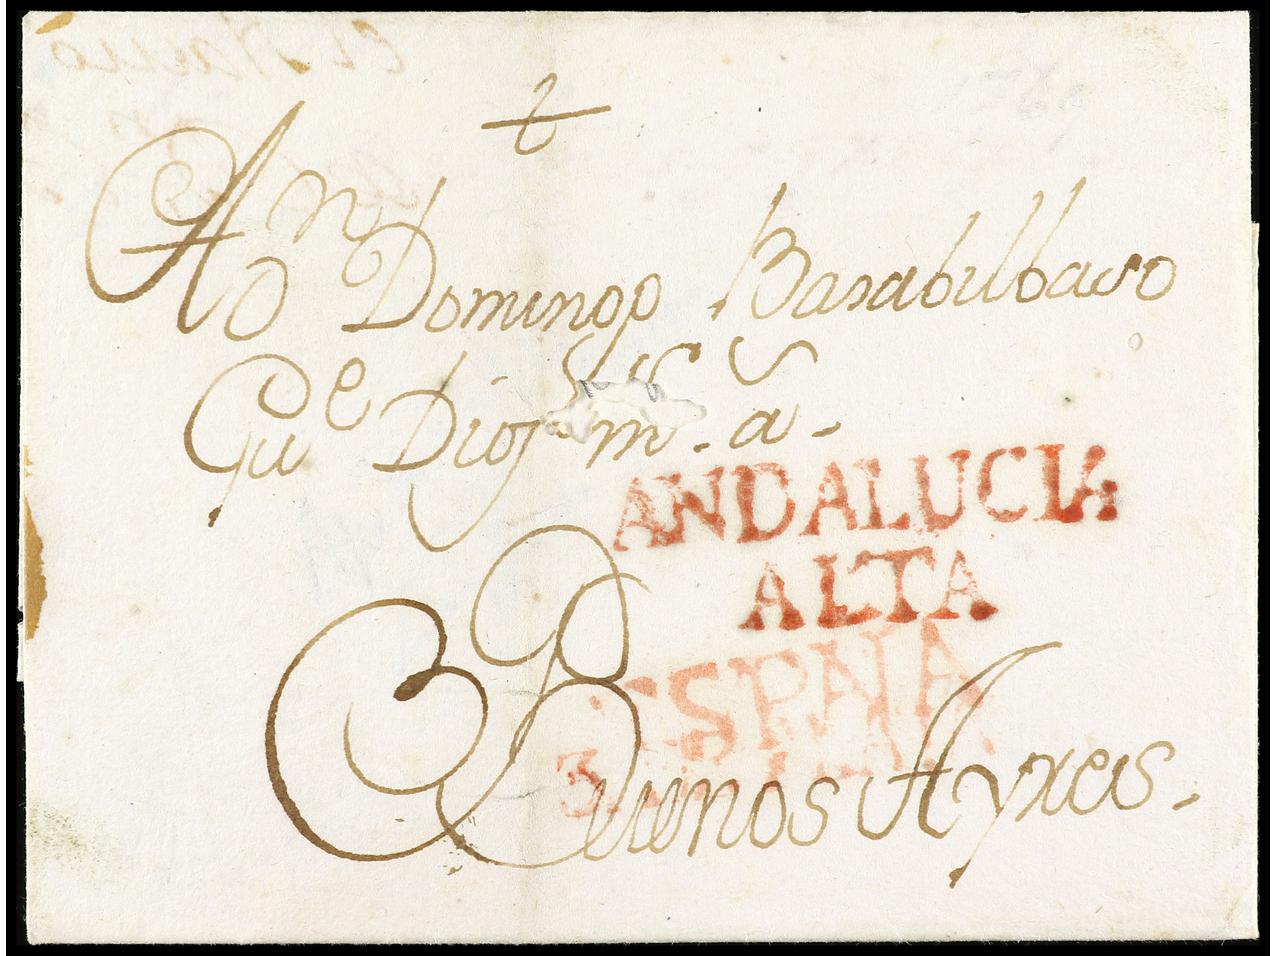 A Dn
Domingo Basabilbaso
Gue Dios m. a.
ANDALUCIA
ALTA
ESPAÑA
Buenos Ayres.